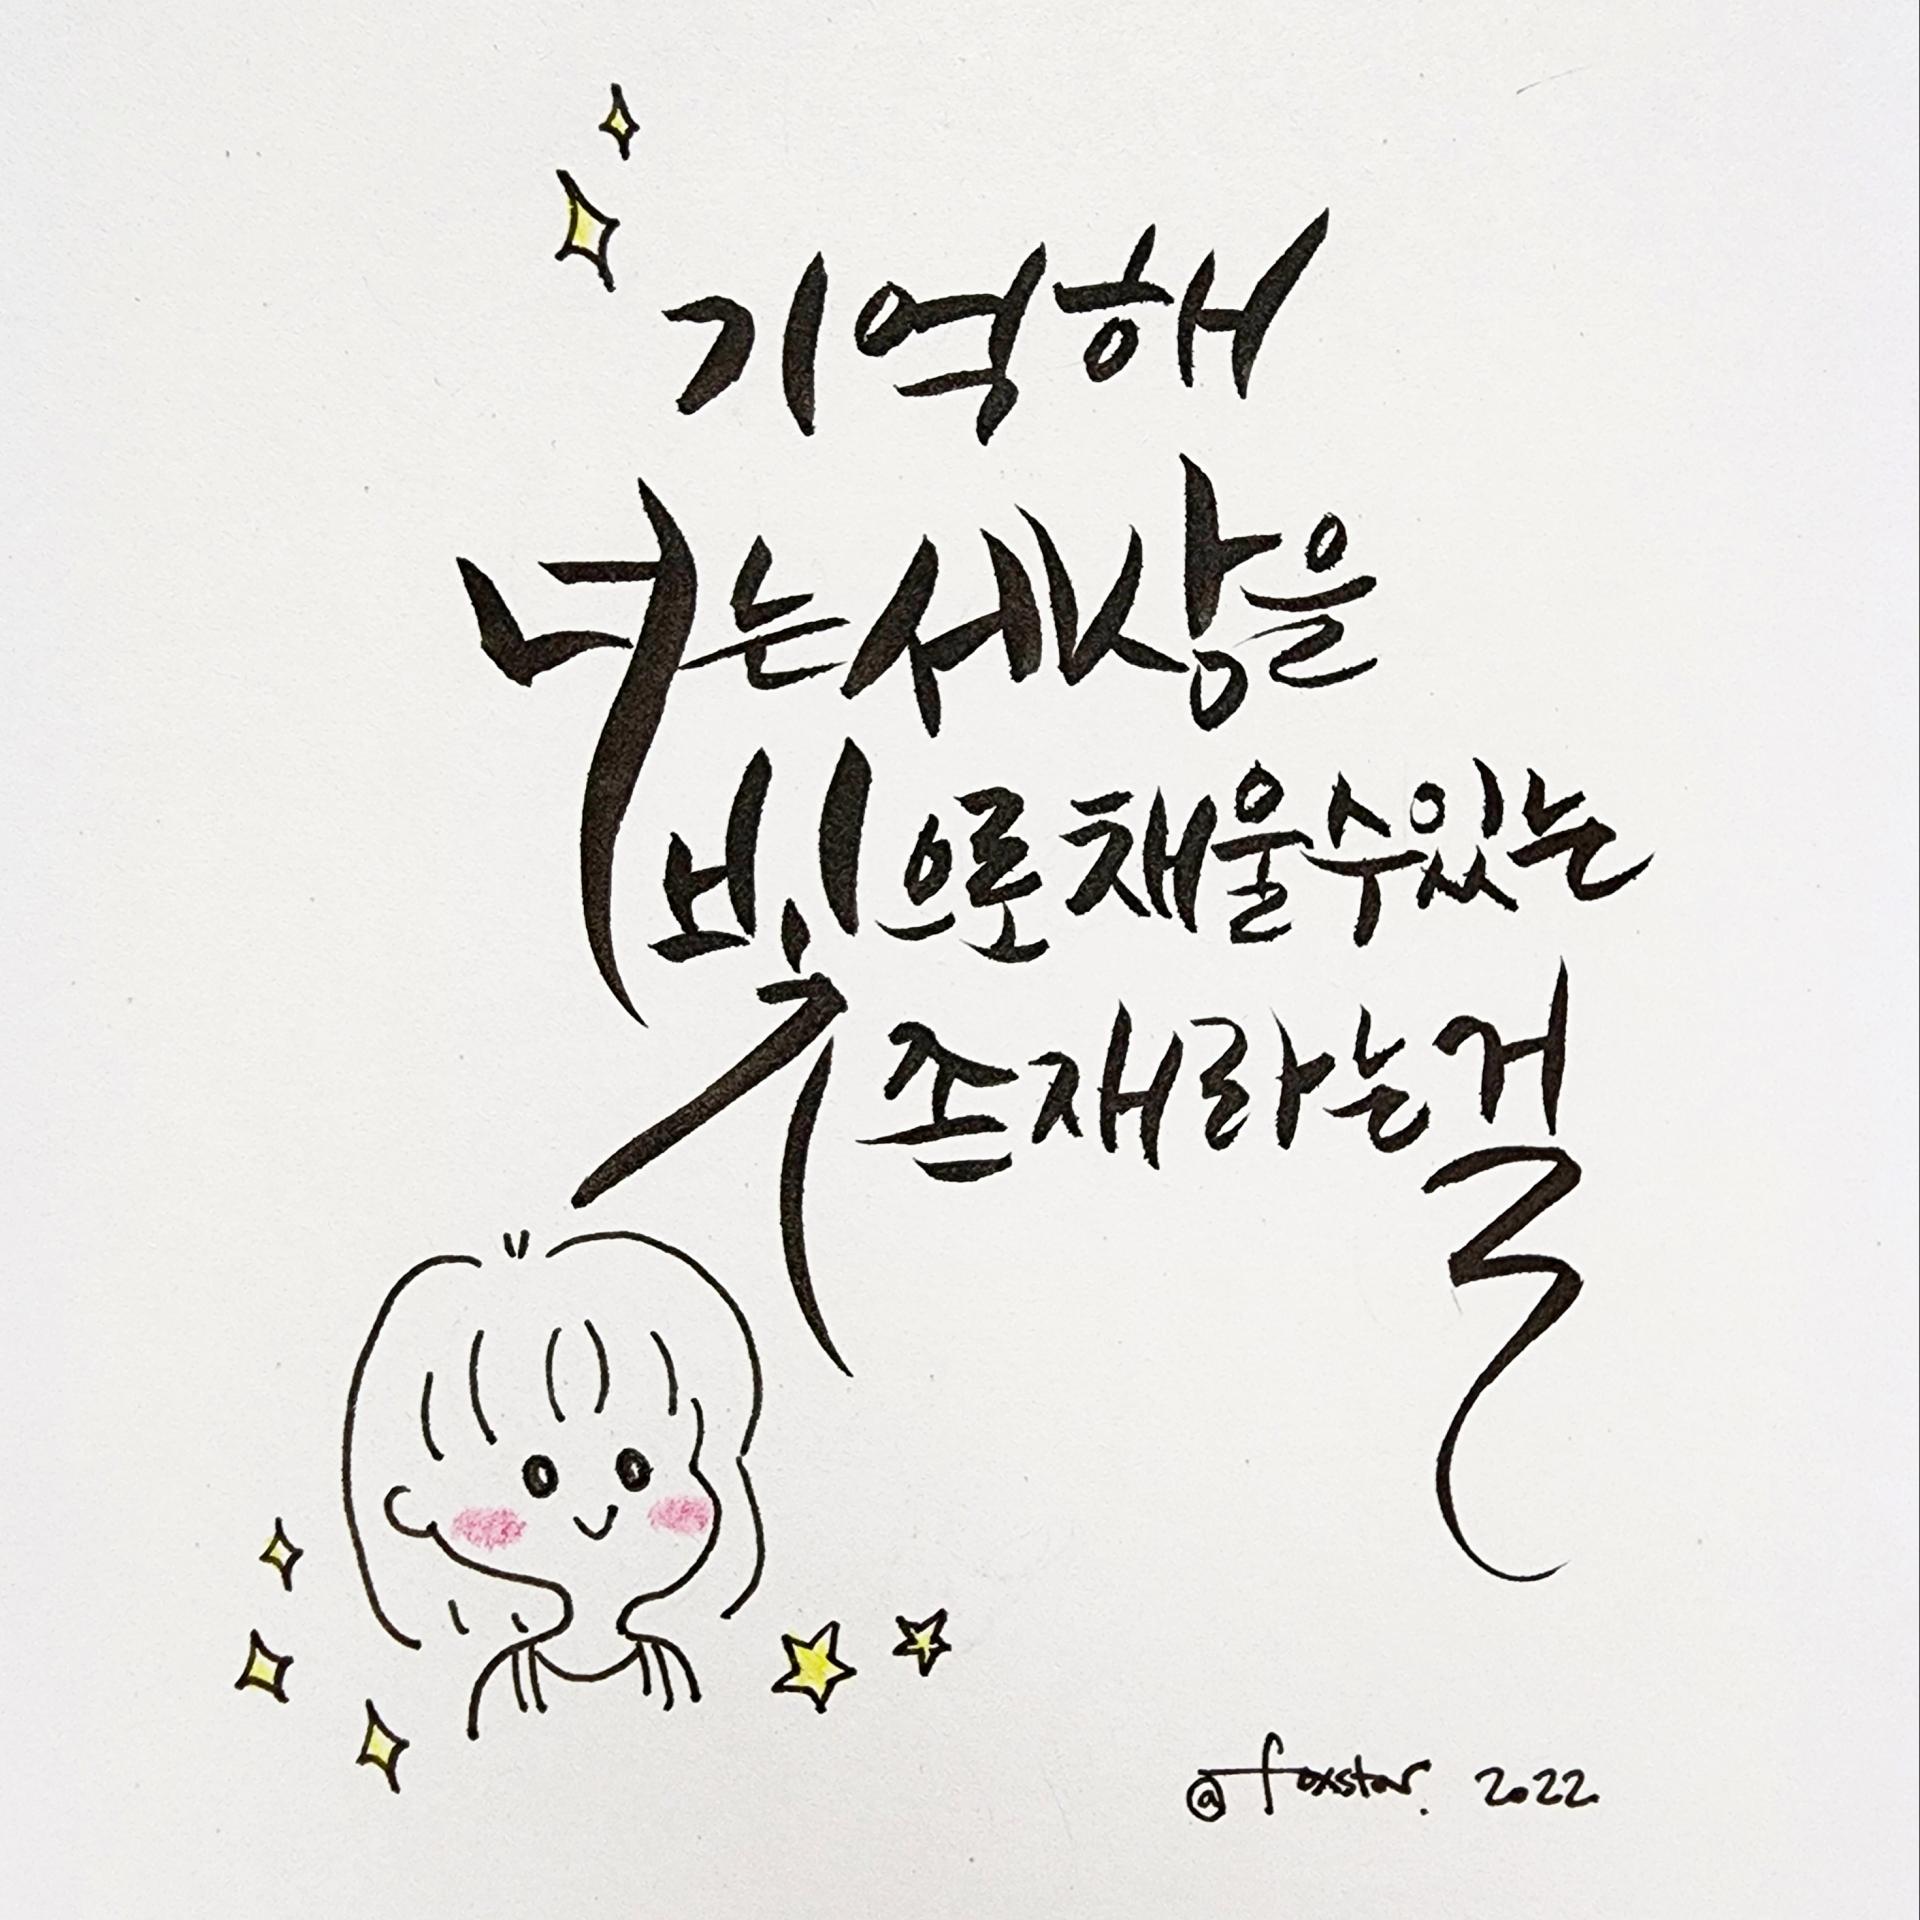 기억해
너는 세상을
빛으로 채울 수 있는
존재라는 걸
@foxstar. 2022.